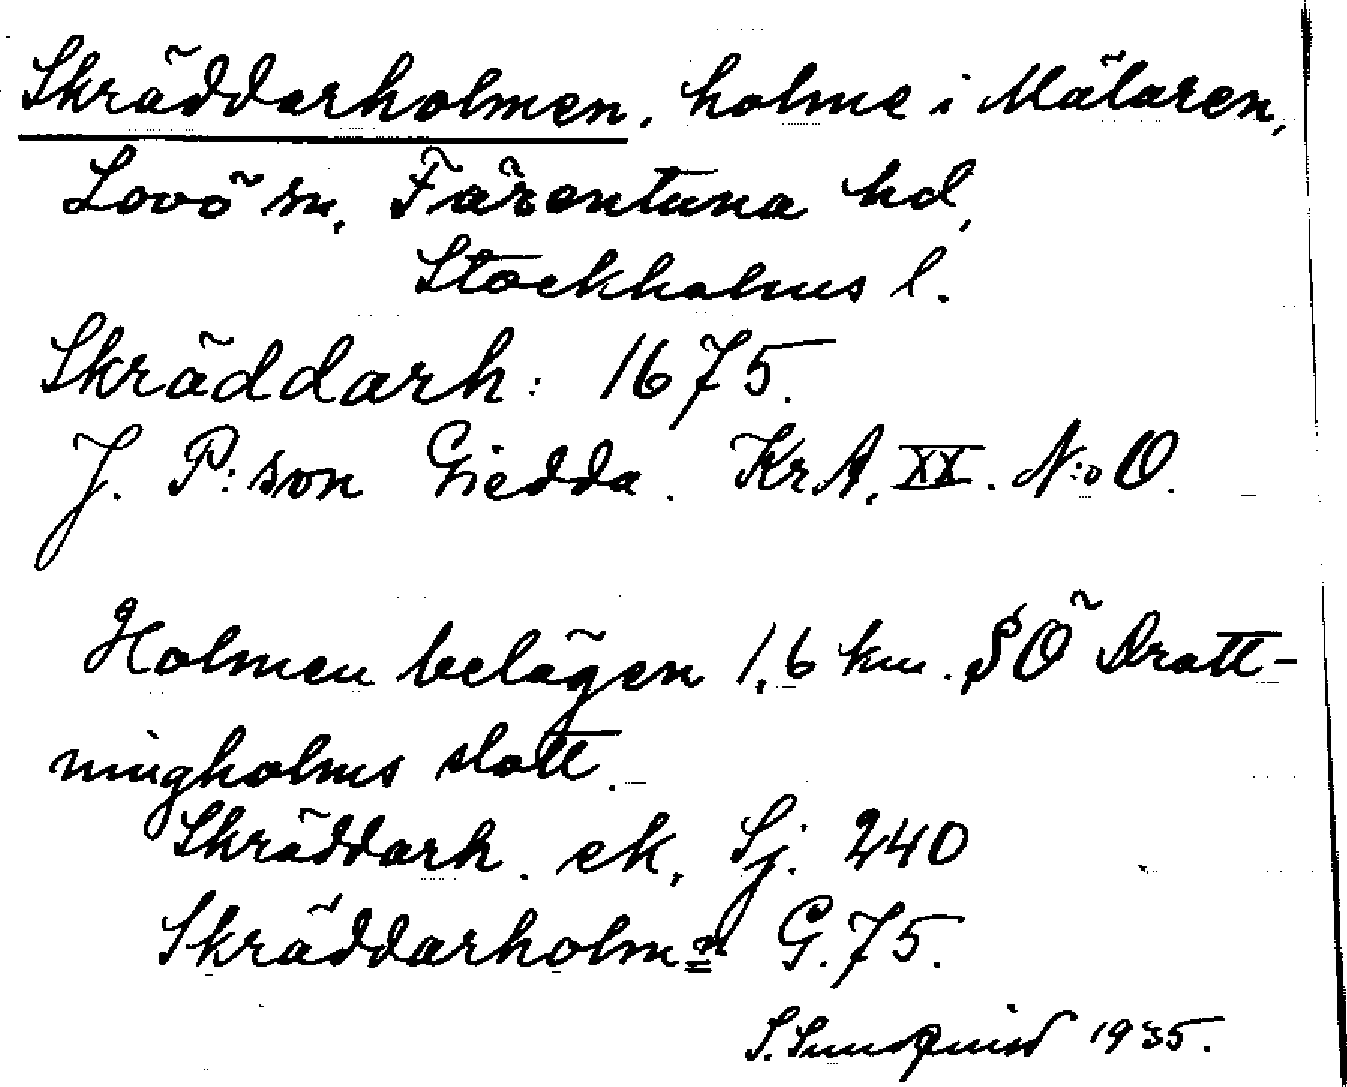 Skräddarholmen. holme i Mälaren,
Lovö sn, Färentuna hd,
Stockholms l.
Skräddarh: 1675.
J. P:son Giedda. KrA. XX. N:o O.
Holmen belägen 1,6 km. SÖ Drott-
ningholms slott.
Skräddarh. ek. Sj. 240
Skräddarholmn G. 75.
S. 1935.